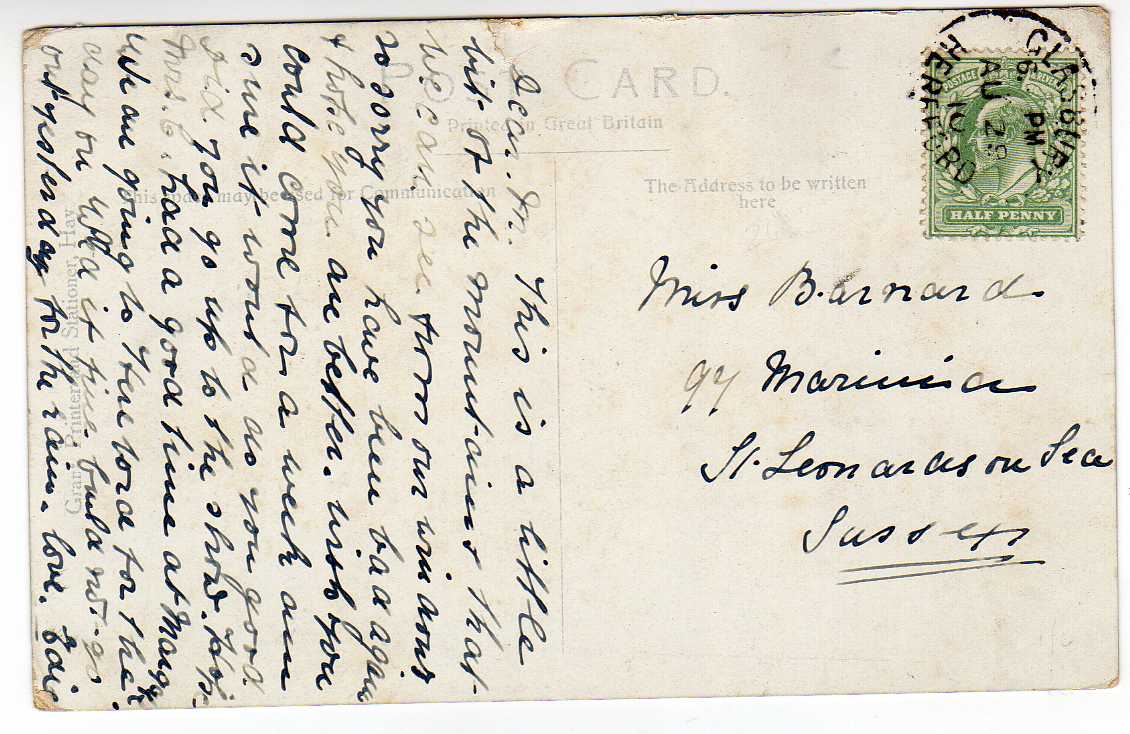 POST CARD.
Printed in Great Britain
This space may be used for Communication
The Address to be written
here
Grant, Printer and Stationer, Hay
POSTAGE REVENUE
HALF PENNY
GLASBURY
6 PM
AU 29
10
HEREFORD
Miss Barnard
97 Marina
St. Leonards on Sea
Sussex
Dear This is a little
bit of the mountains that
we can see from our windows
so sorry you have been bad again
& hope you are better. wish you
could come for a week am
sure it would do you good.
did you go up to the show.
Mrs. had a good time at
We are going to Hereford for the
day on if fine. could not go
out yesterday for the rain. love. Edie